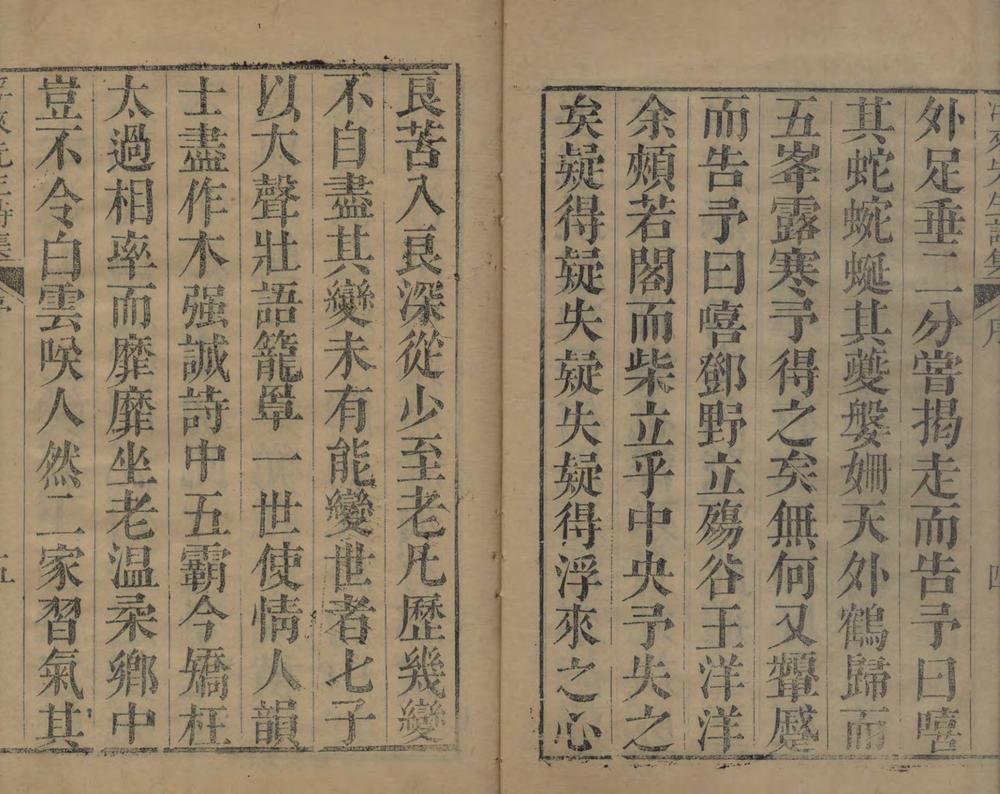 浮來先生詩集 序 四
外足垂二分當揭走而告予曰嘻
其蛇蜿蜒其夔媻姍天外鶴歸而
五峯露寒予得之矣無何又顰蹙
而告予曰嘻鄧野立殤谷王洋洋
余頫若閣而柴立乎中央予失之
矣疑得疑失疑失疑得浮來之心
良苦入良深從少至老凡歷幾變
不自盡其變未有能變世者七子
以大聲壯語籠罩一世使情人韻
士盡作木强誠詩中五霸今矯枉
太過相率而靡靡坐老温柔鄉中
豈不令白雲唉人然二家習氣其
浮來先生詩集 序 五